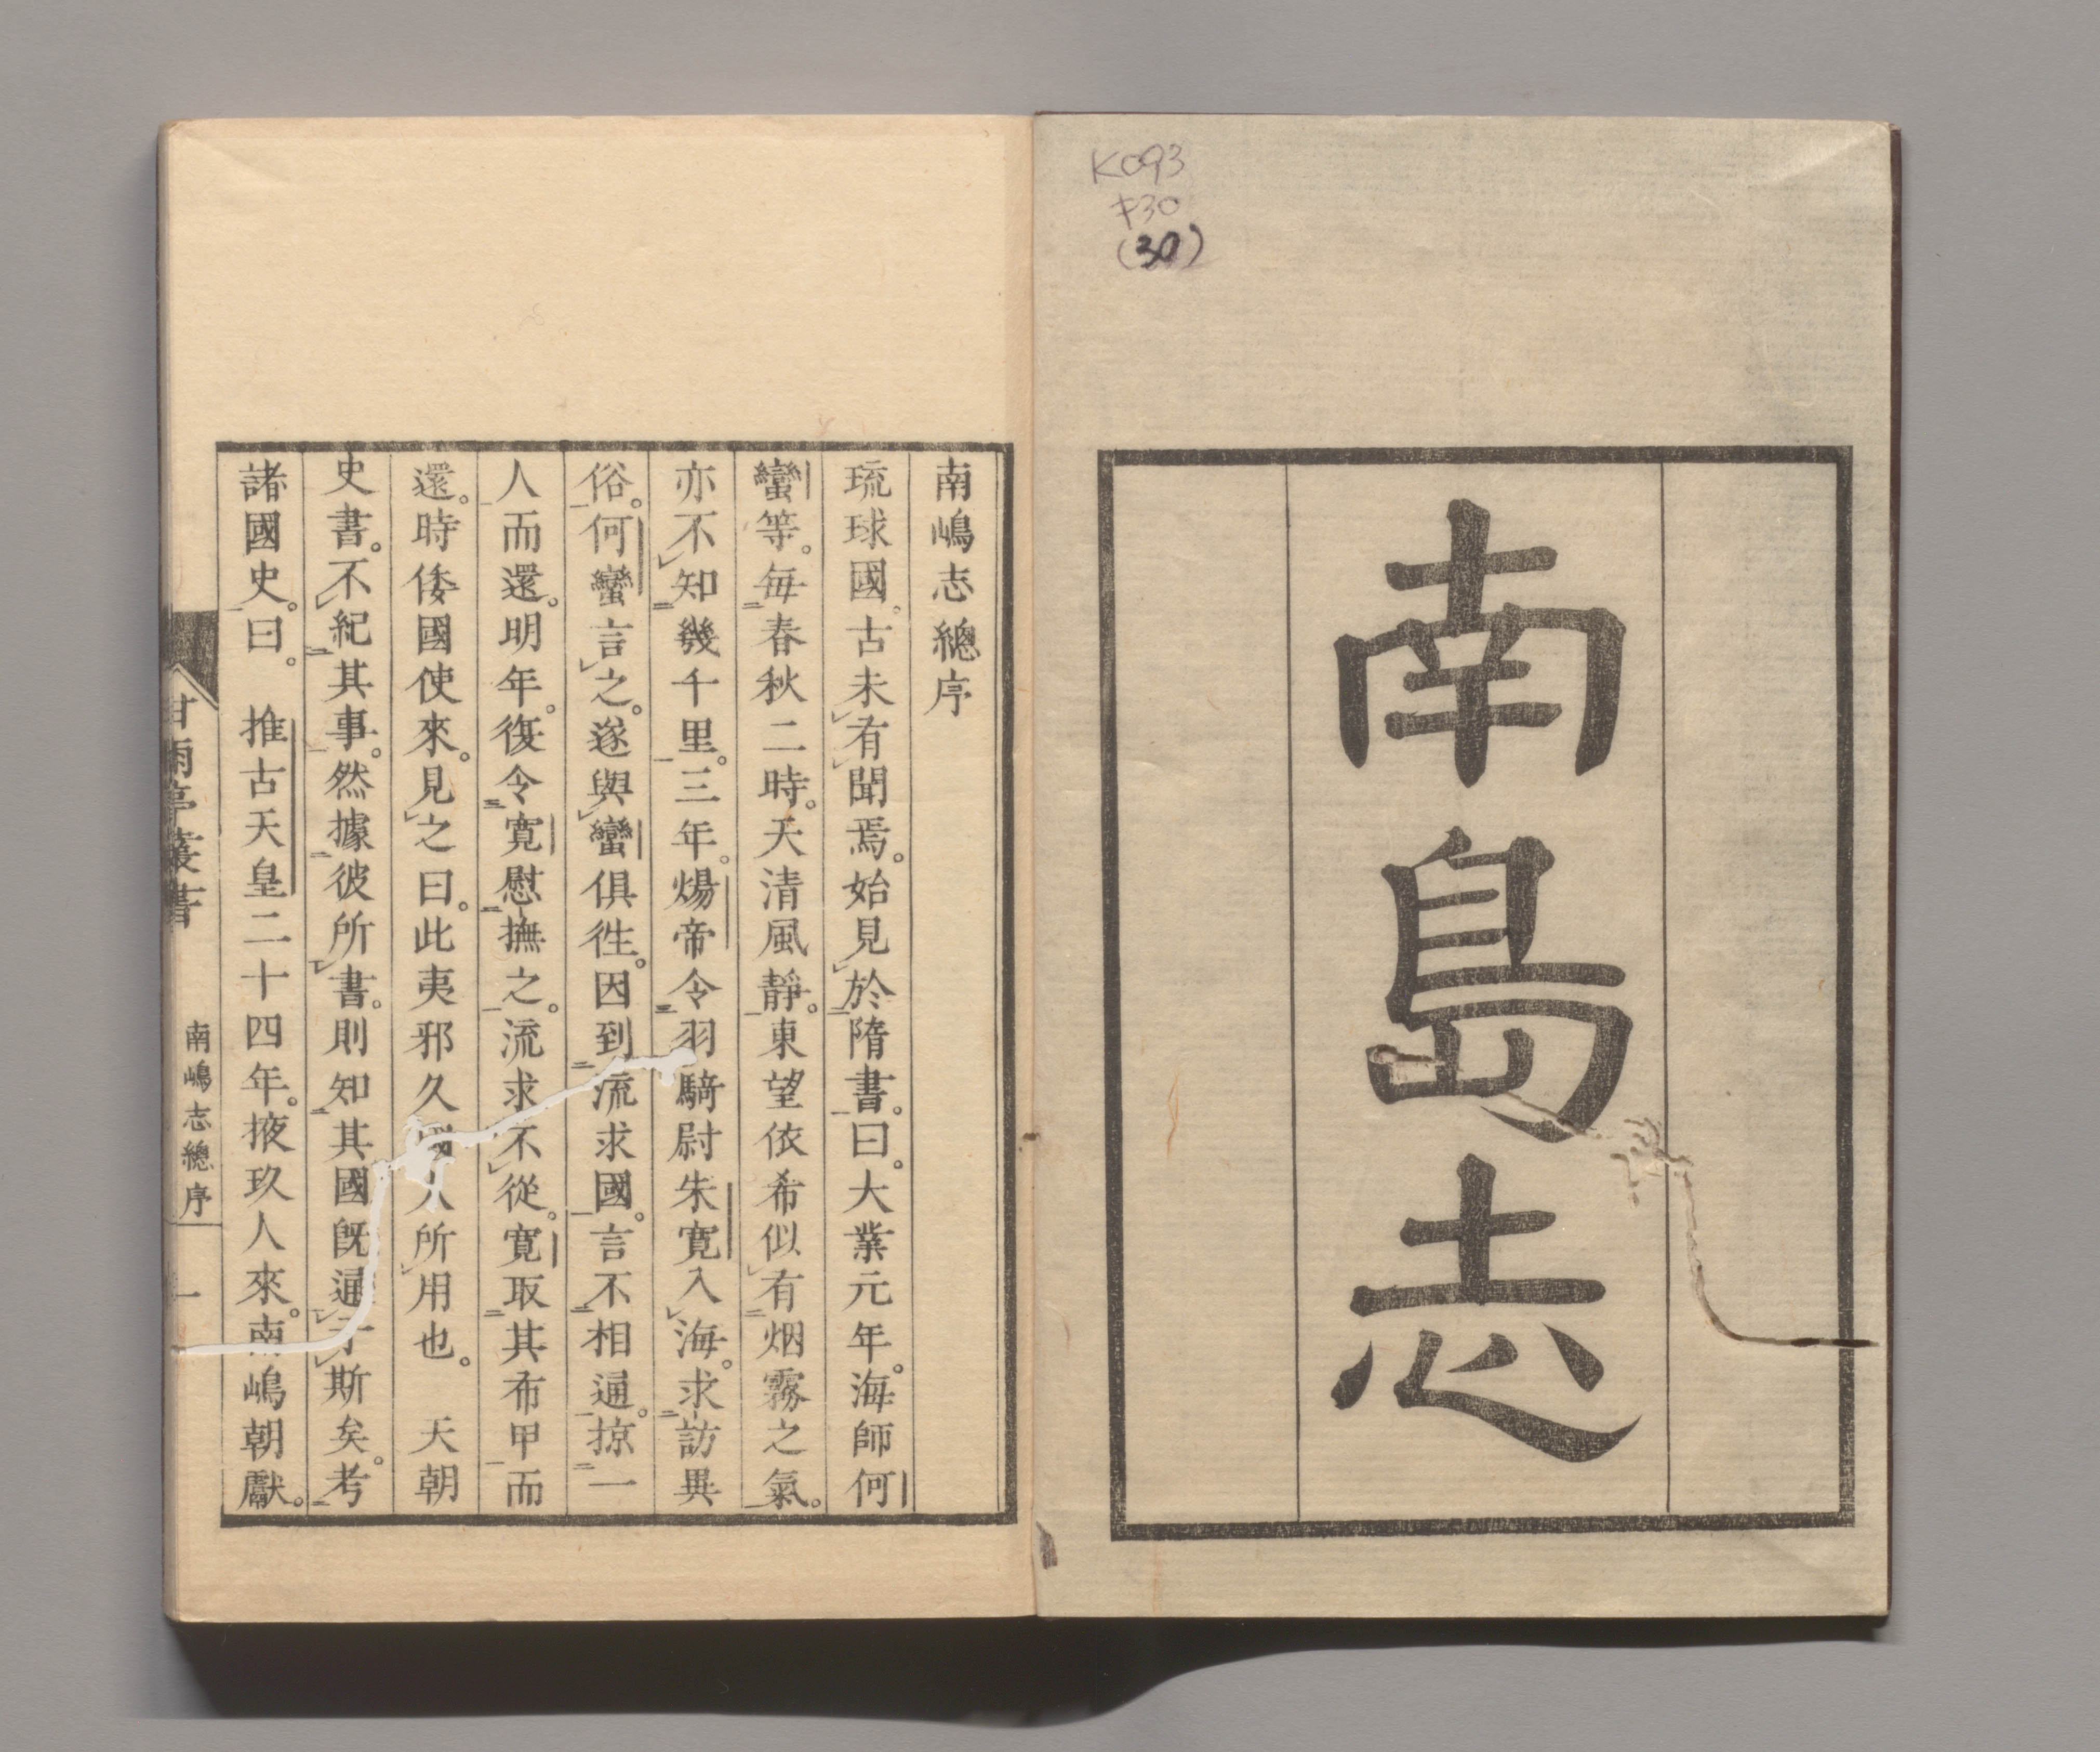 K093
キ30
(30)
南島志
南嶋志總序
琉球國。古未有聞焉。始見於隋書。曰。大業元年。海師何
蠻等。每春秋二時。天清風靜。東望依希似有烟霧之氣。
亦不知幾千里。三年。煬帝令羽騎尉朱寬入海。求訪異
俗。何蠻言之。遂與蠻俱徃。因到流求國。言不相通。掠一
人而還。明年。復令寬慰撫之。流求不從。寬取其布甲而
還。時倭國使來。見之曰。此夷邪久國人所用也。 天朝
史書。不紀其事。然據彼所書。則知其國旣通于斯矣。考
諸國史。曰。 推古天皇二十四年。掖玖人來。南嶋朝獻。
甘雨亭叢書
南嶋志總序
一